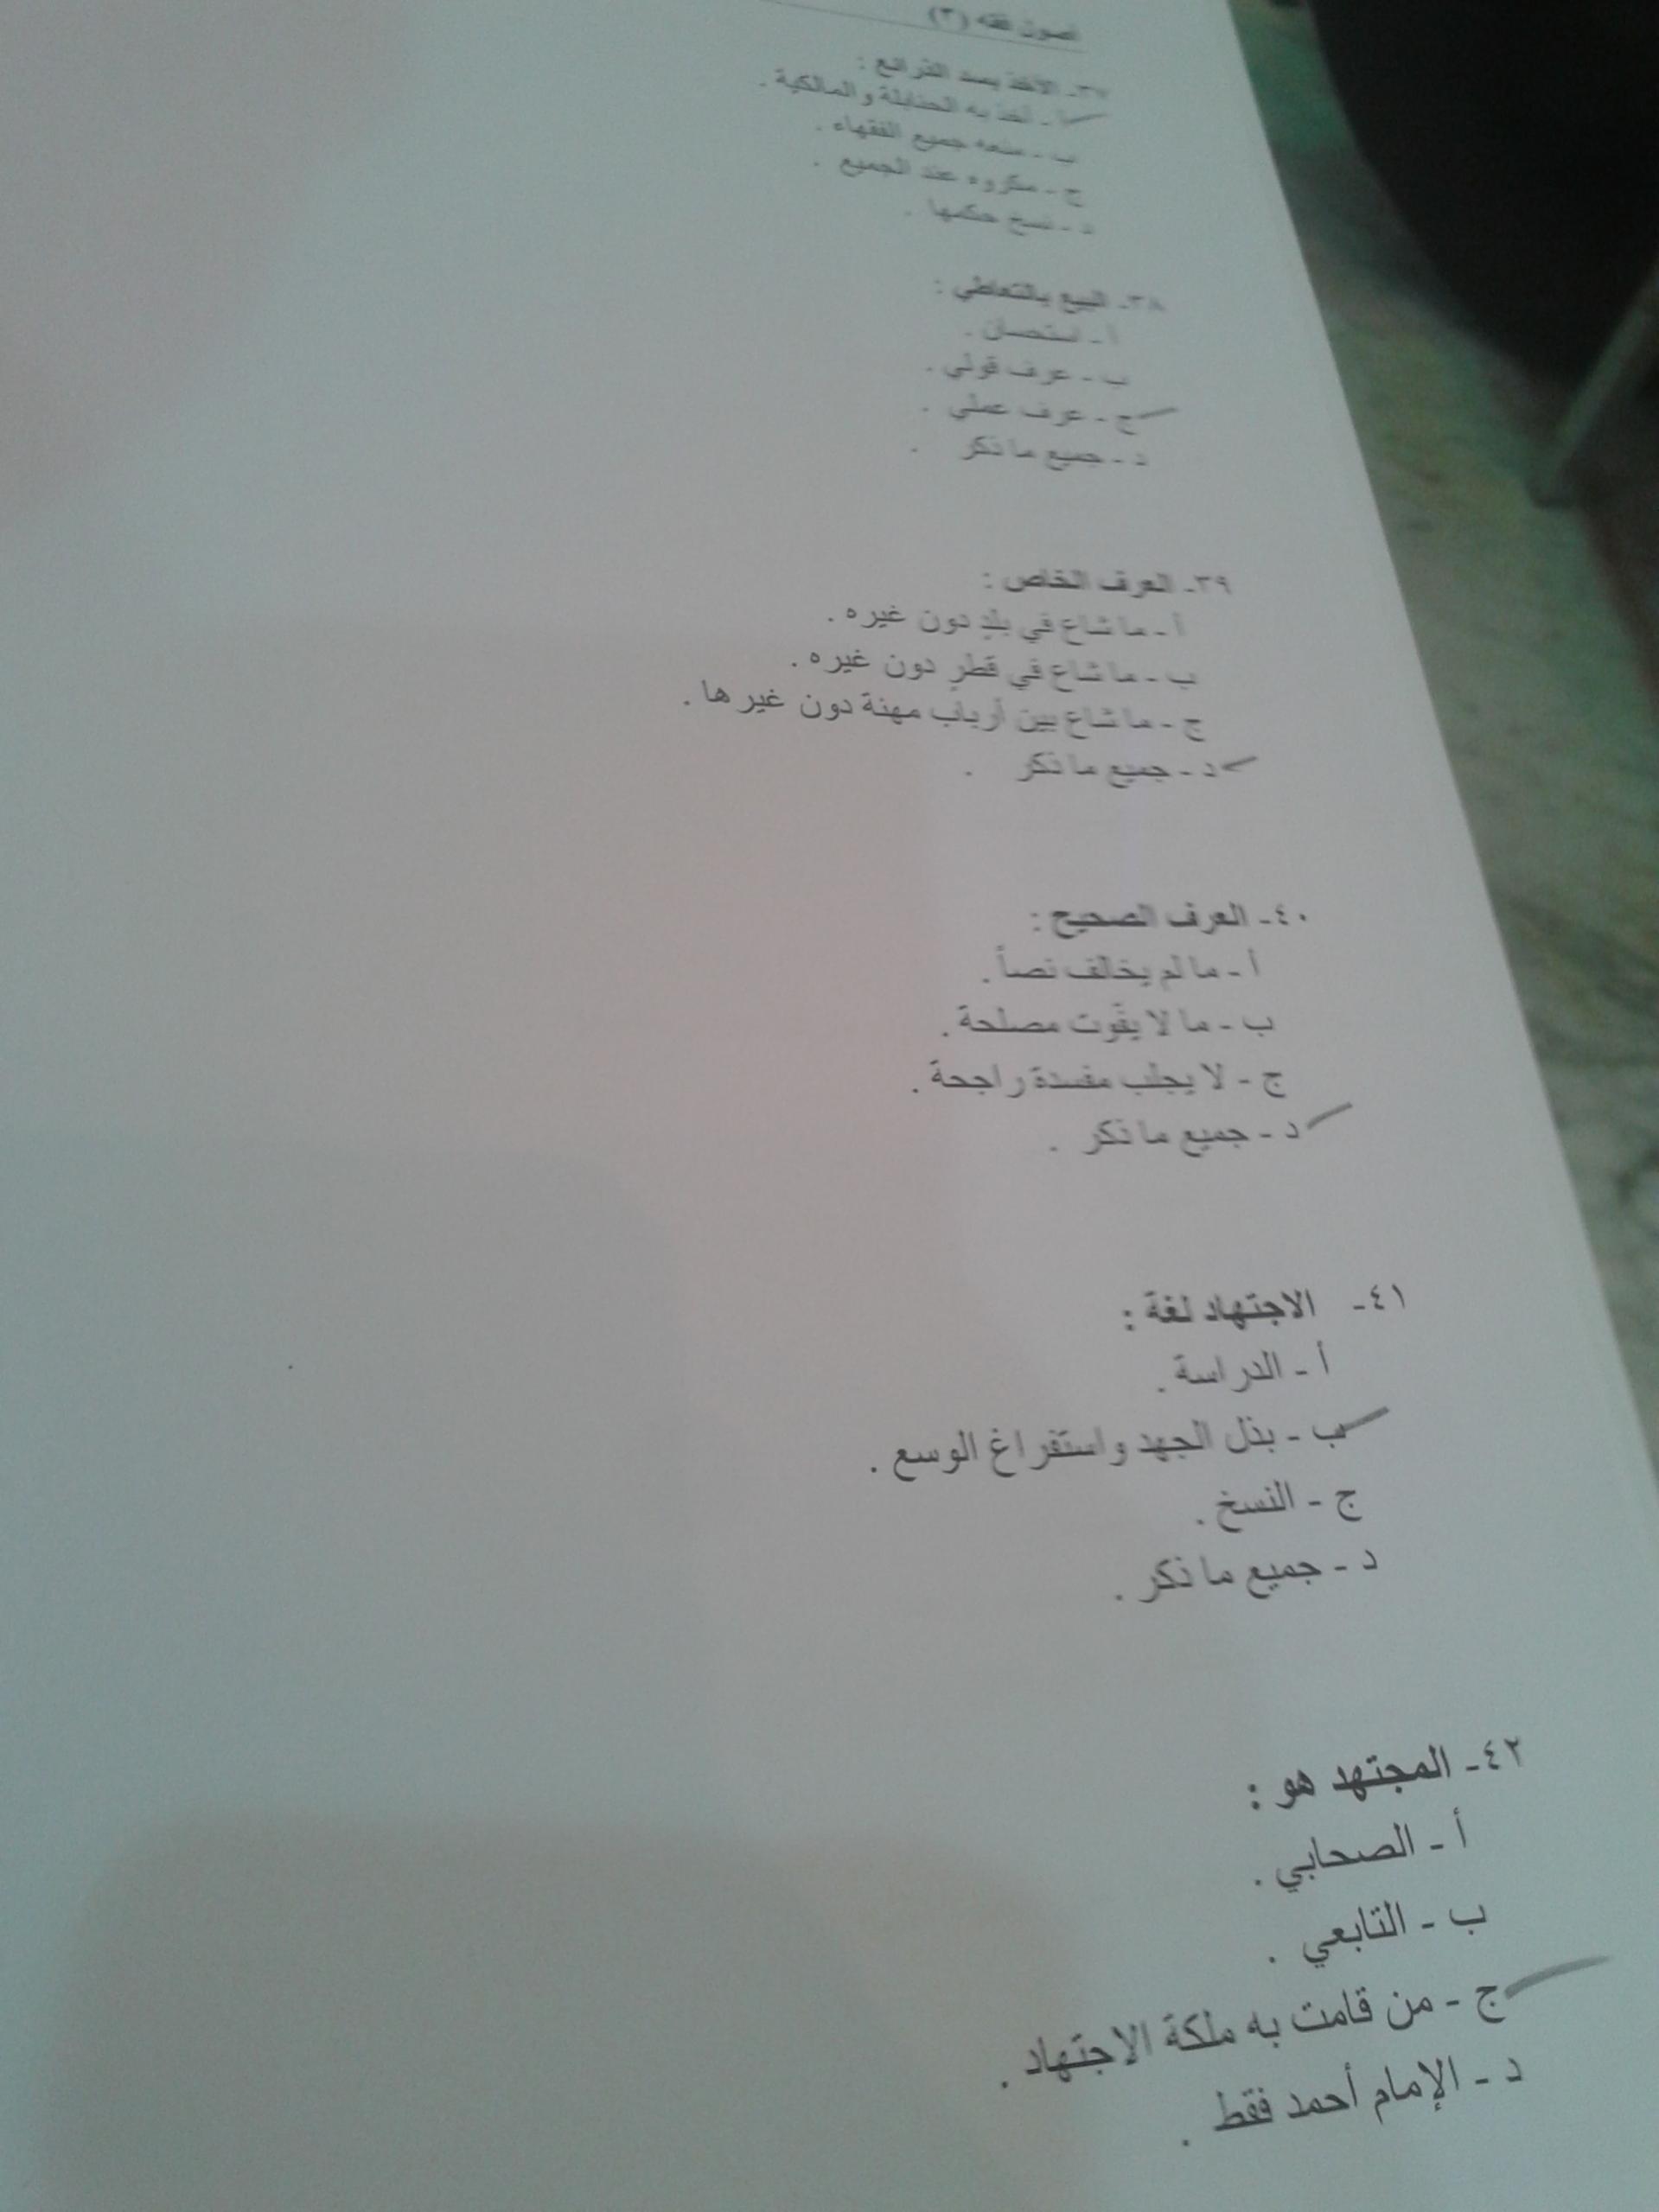 أصول فقه (٣)
٣٧- الأخذ بسد الذرائع :
أ - أخذ به الحنابلة والمالكية .
ب - منعه جميع الفقهاء .
ج - مكروه عند الجميع .
د - نسخ حكمها .
٣٨- البيع بالتعاطي :
أ - استحسان .
ب - عرف قولي .
ج - عرف عملي .
د - جميع ما ذكر .
٣٩- العرف الخاص :
أ - ما شاع في بلدٍ دون غيره .
ب - ما شاع في قطرٍ دون غيره .
ج - ما شاع بين أرباب مهنة دون غيرها .
د - جميع ما ذكر .
٤٠- العرف الصحيح :
أ - ما لم يخالف نصاً .
ب - ما لا يفوت مصلحة .
ج - لا يجلب مفسدة راجحة .
د - جميع ما ذكر .
٤١- الاجتهاد لغة :
أ - الدراسة .
ب - بذل الجهد واستفراغ الوسع .
ج - النسخ .
د - جميع ما ذكر .
٤٢- المجتهد هو :
أ - الصحابي .
ب - التابعي .
ج - من قامت به ملكة الاجتهاد .
د - الإمام أحمد فقط .